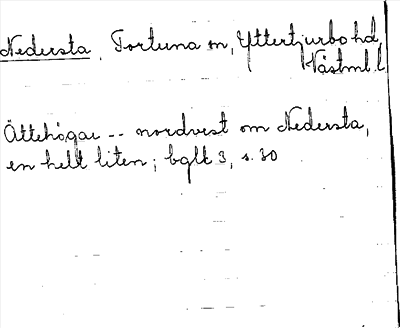 Nedersta, Tortuna sn, Yttertjurbo hd
Västml. l.
Ättehögar -- nordvest om Nedersta,
en helt liten; bglt 3, s. 30